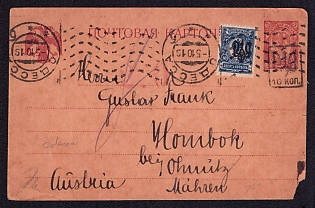 ПОЧТОВАЯ КАРТО
ОДЕССА
5 10 19
ОДЕССА
5 10 19
10 КОП.
Herrn
Gustav Frank
Wlombok
bei Olmütz
Mähren
Austria
Odessa